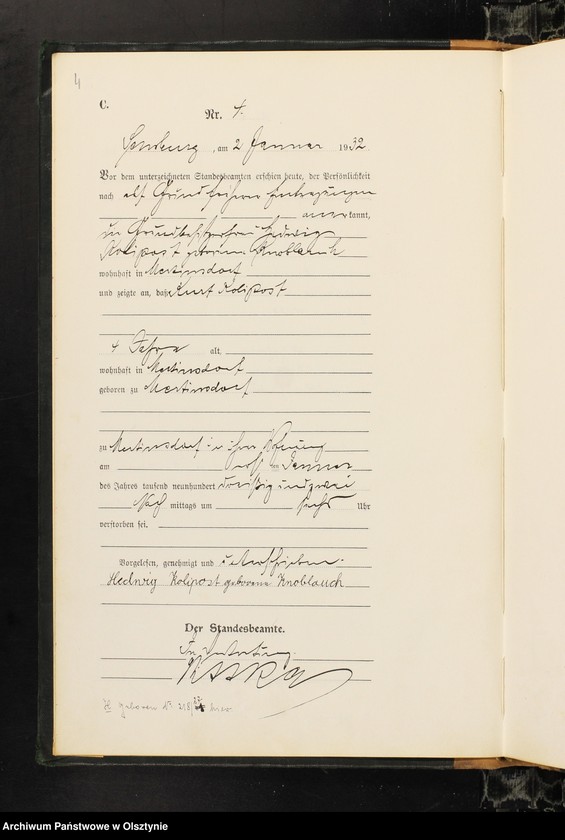 4
C.
Nr. 4.
Sensburg, am 2 Januar 1932
Vor dem unterzeichneten Standesbeamten erschien heute, der Persönlichkeit
nach auf Grund
anerkannt,
die Grundbesitzerfrau Hedwig
Kolipost geborene Knoblauch
wohnhaft in Mertinsdorf
und zeigte an, daß Kurt Kolipost
4 Jahre alt,
wohnhaft in Mertinsdorf
geboren zu Mertinsdorf
zu Mertinsdorf in ihrer Wohnung
am ersten Januar
des Jahres tausend neunhundert dreißig und zwei
Nach mittags um sechs Uhr
verstorben sei.
Vorgelesen, genehmigt und unterschrieben.
Hedwig Kolipost geborene Knoblauch
Der Standesbeamte.
In Vertretung.
geboren Nr.
Archiwum Państwowe w Olsztynie